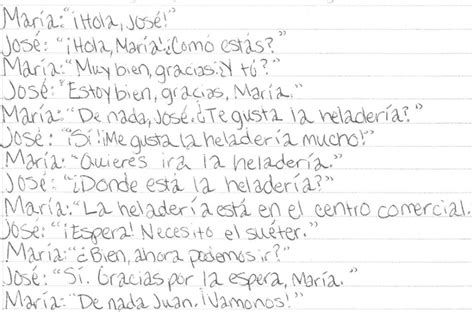 María: "¡Hola, José!"
José: "¡Hola, María! ¿Comó estás?"
María: "Muy bien, gracias. ¿Y tú?"
José: "Estoy bien, gracias, María."
María: "De nada, José. ¿Te gusta la heladería?"
José: "¡Sí! ¡Me gusta la heladería mucho!"
María: "Quieres ir a la heladería."
José: "¿Donde está la heladería?"
María: "La heladería está en el centro comercial.
José: "¡Espera! Necesito el suéter."
María: "¿Bien, ahora podemos ir?"
José: "Sí. Gracias por la espera, María."
María: "De nada Juan. ¡Vamonos!"